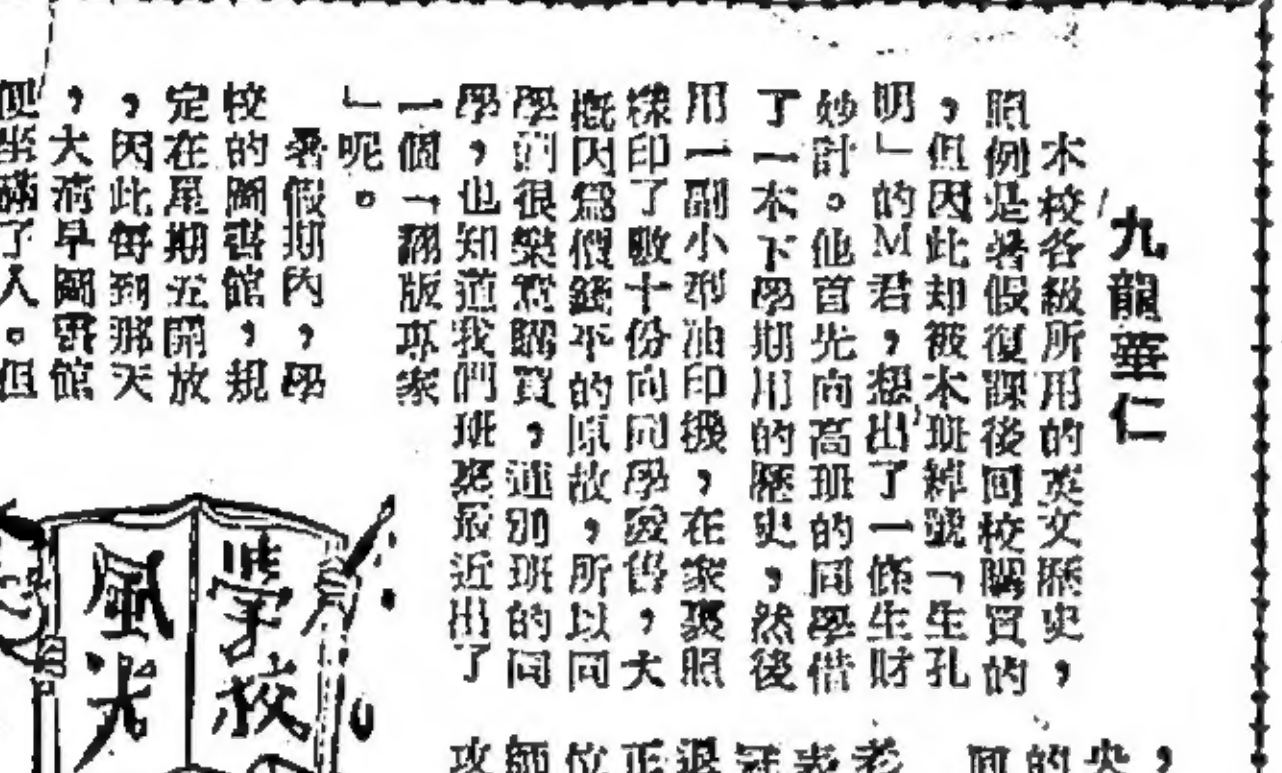 九龍華仁
本校各級所用的英文歷史,
照例是暑假復課後回校購買的
,但因此却被本班綽號「生孔
明」的M君,想出了一條生財
妙計。他首先向高班的同學借
了一本下學期用的歷史,然後
用一副小型油印機,在家裏照
樣印了數十份向同學發售,大
概因為價錢平的原故,所以同
學們很樂意購買,連別班的同
學,也知道我們班裏最近出了
一個「翻版專家
」呢。
暑假期內,學
校的圖書館,規
定在星期五開放
,因此每到那天
,大清早圖書館
便坐滿了人。但
學校
風光